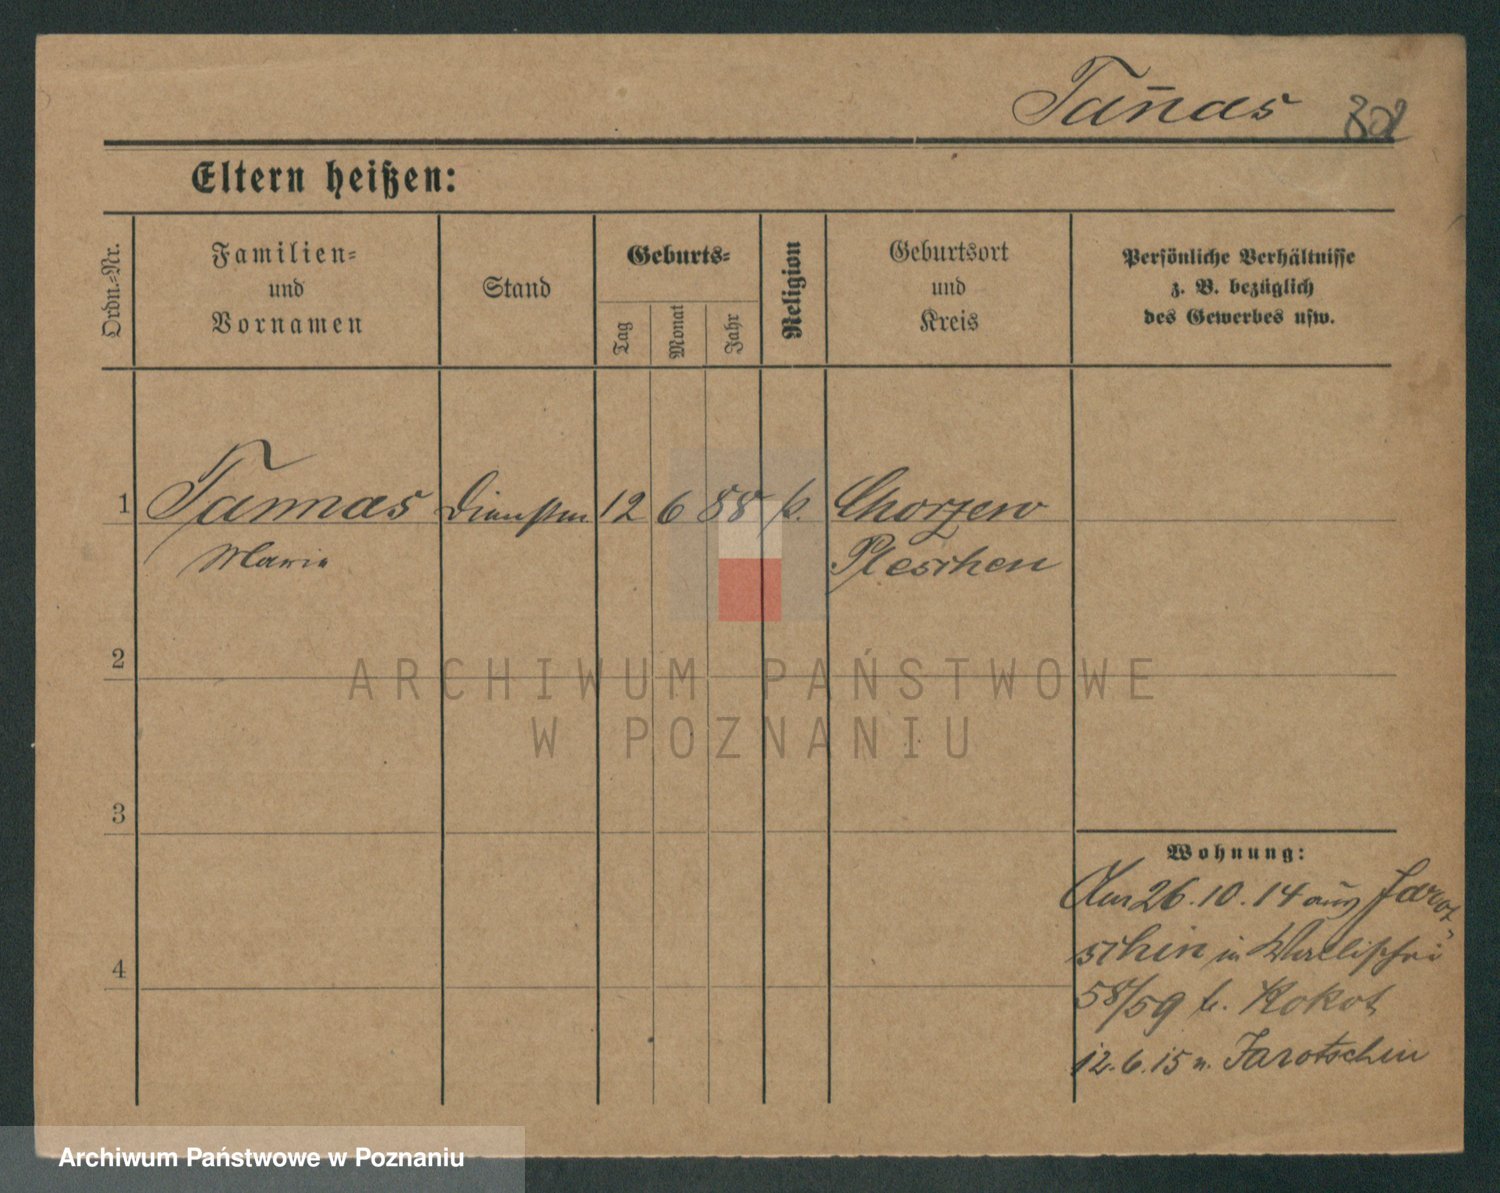 Tan̄as 802
Eltern heißen:
Ordn.-Nr.
Familien-
und
Vornamen
Stand
Geburts-
Tag
Monat
Jahr
Religion
Geburtsort
und
Kreis
Persönliche Verhältnisse
z. B. bezüglich
des Gewerbes usw.
1 Tannas 12 6 88 k. Chorzew
Marie Pleschen
2
3
4
Wohnung:
Am 26.10.14 aus Jarot-
schin in
58/59 b. Kokot
12.6.15 n. Jarotschin
ARCHIWUM PAŃSTWOWE
W POZNANIU
Archiwum Państwowe w Poznaniu